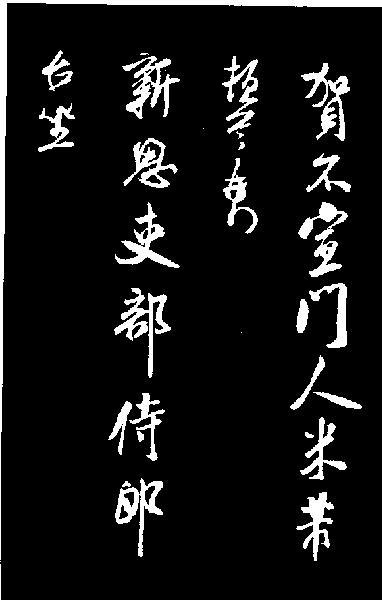 賀不宣門人米芾
頓首再拜
新恩吏部侍郎
台坐